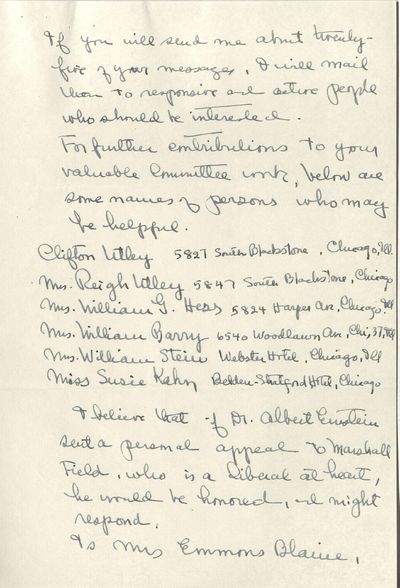 If you will send me about twenty-
five of your messages, I will mail
them to responsive and active people
who should be interested.
For further contributions to your
valuable Committee work, below are
some names of persons who may
be helpful.
Clifton Utley 5827 South Blackstone, Chicago, Ill.
Mrs. Reigh Utley 5847 South Blackstone, Chicago
Mrs. William G. Hess 5824 Harper Av, Chicago. Ill
Mrs. William Barry 6540 Woodlawn Av, Chi, 37, Ill
Mrs. William Stein Webster Hotel, Chicago, Ill
Miss Susie Kahn Belden-Stratford Hotel, Chicago
I believe that if Dr. Albert Einstein
sent a personal appeal to Marshall
Field, who is a liberal at heart,
he would be honored, and might
respond.
Is Mrs Emmons Blaine,